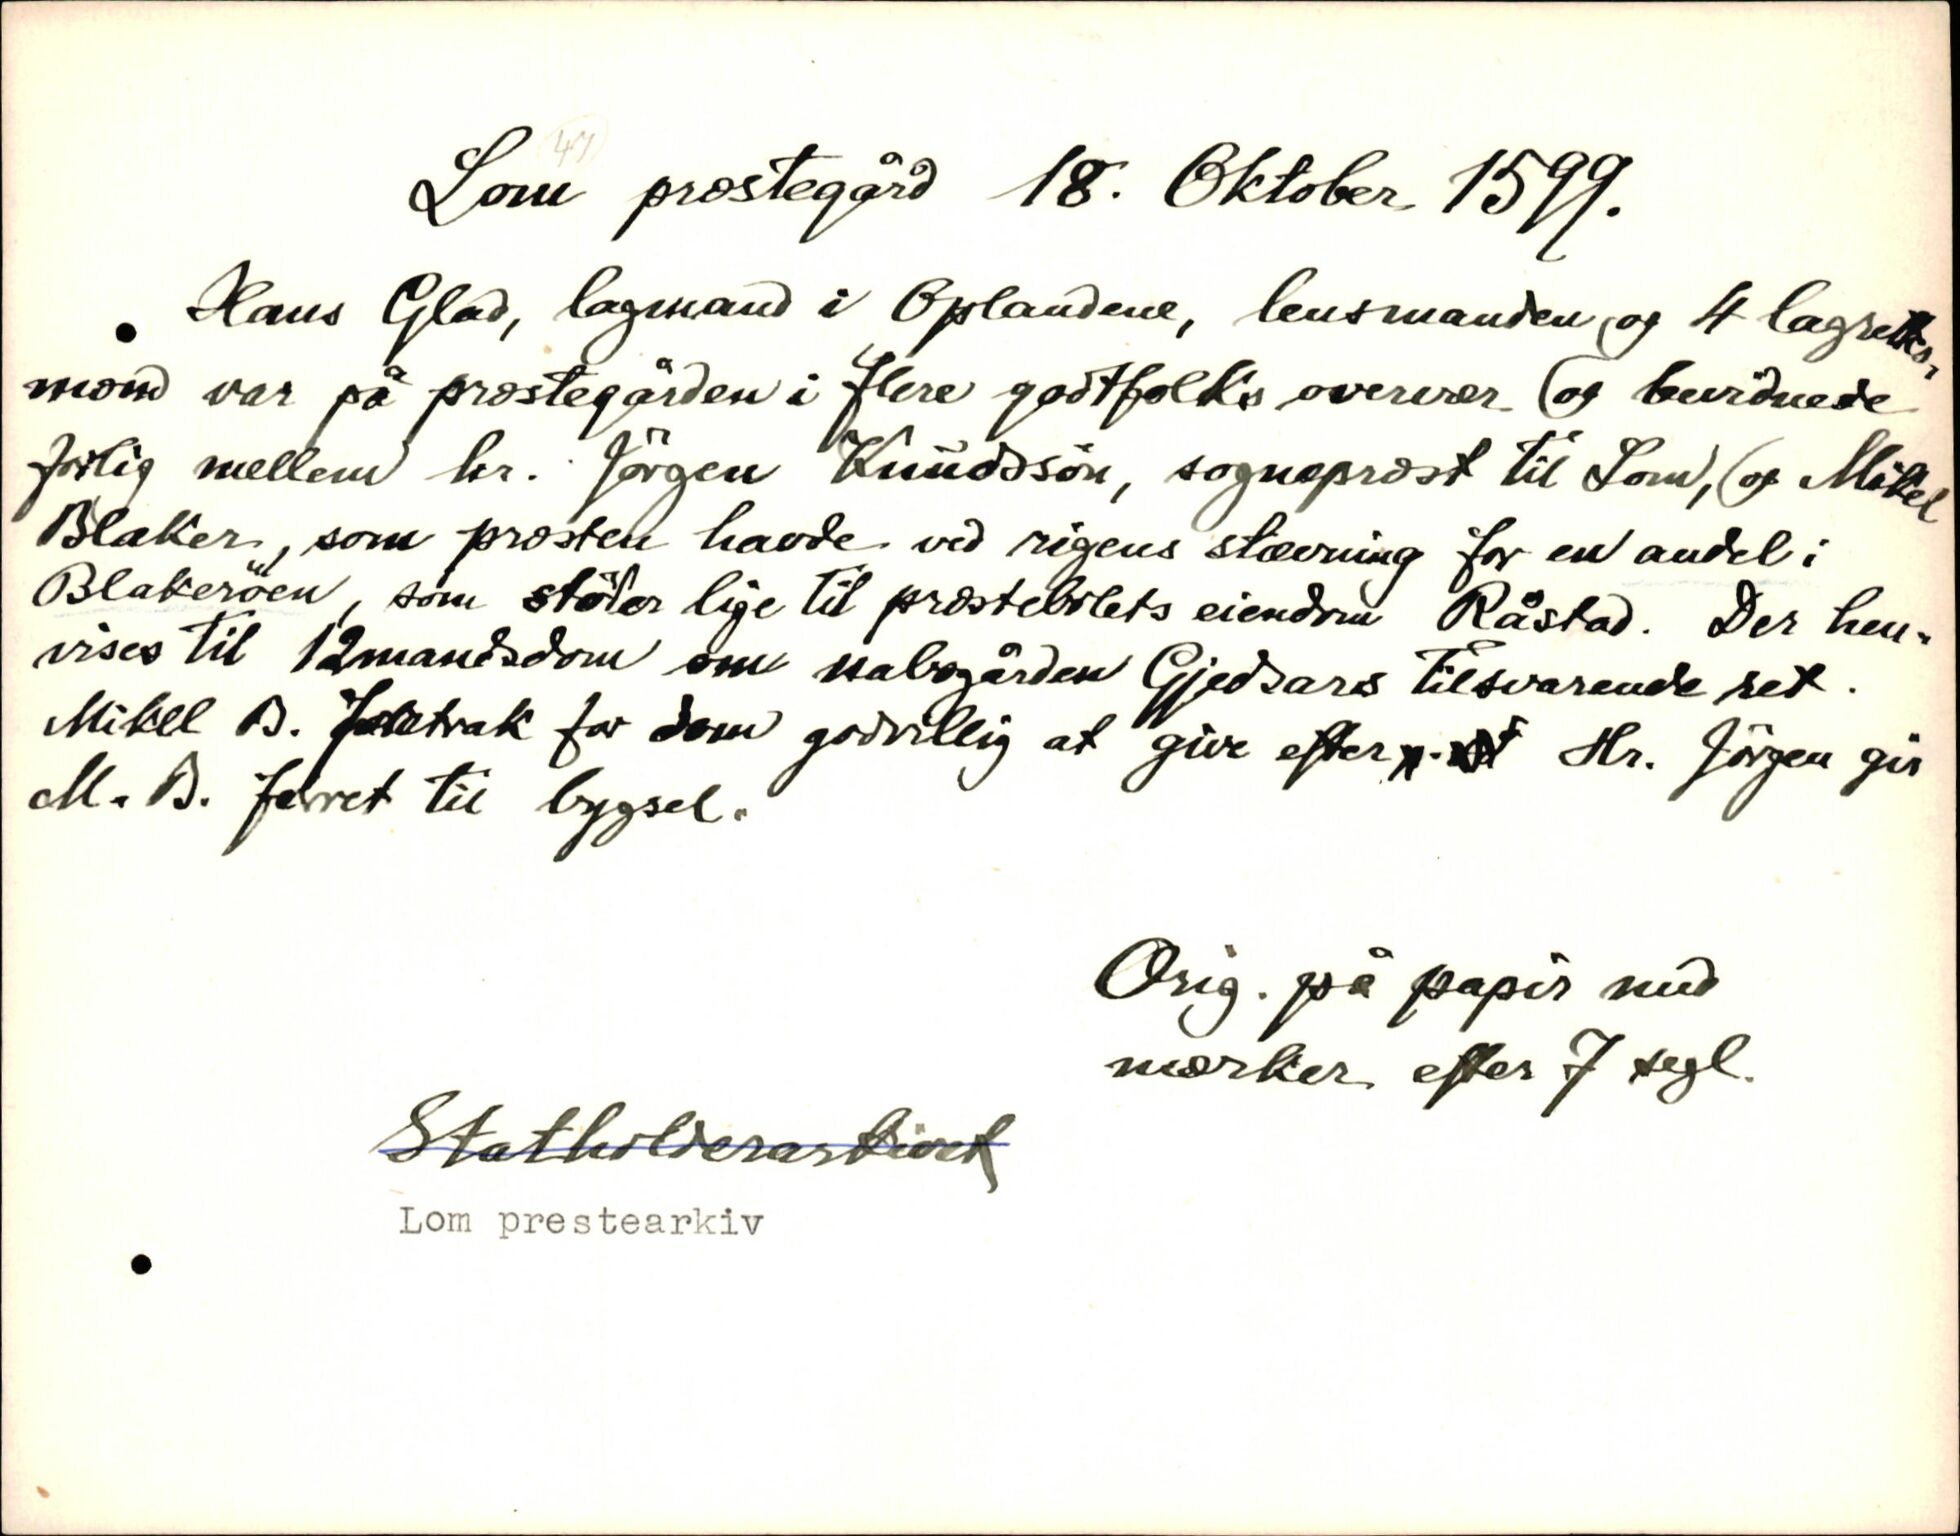 47
Lom præstegård 18. Oktober 1599.
Hans Glad, lagmand i Oplandene, lensmanden og 4 lagrettes-
mænd var på præstegården i flere godtfolks overvær og bevidnede
forlig mellem hr. Jörgen Knüddsön, sognepræst til Lom, og Mikel
Blaker, som præsten havde ved rigens stævning for en andel i
Blakeröen, som stöter lige til præstebolets eiendom Råstad. Der hen-
vises til 12mandsdom om nabogården Gjedsars tilsvarende ret.
Mikel B. foretrak for dom godvillig at give efter Hr. Jörgen gir
M. B. forret til bygsel.
Orig. på papir med
mærker efter 7 segl.
Statholderarkivet
Lom prestearkiv